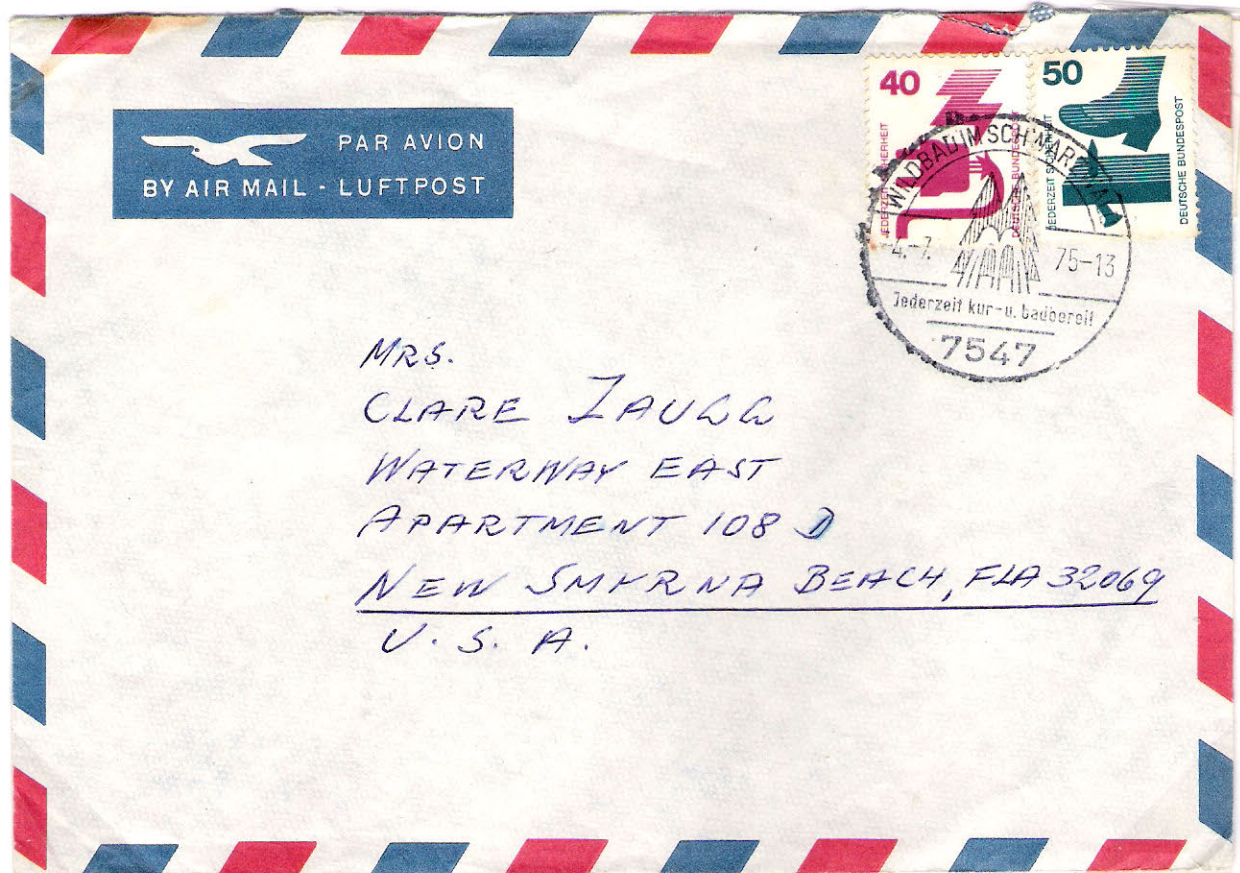 PAR AVION
BY AIR MAIL - LUFTPOST
40
JEDERZEIT SICHERHEIT
DEUTSCHE BUNDESPOST
50
JEDERZEIT SICHERHEIT
DEUTSCHE BUNDESPOST
WILDBAD IM SCHWARZWALD
4.-7. 75-13
Jederzeit kur-u. badbereit
7547
MRS.
CLARE ZAUGG
WATERWAY EAST
APARTMENT 108 D
NEW SMYRNA BEACH, FLA 32069
U. S. A.